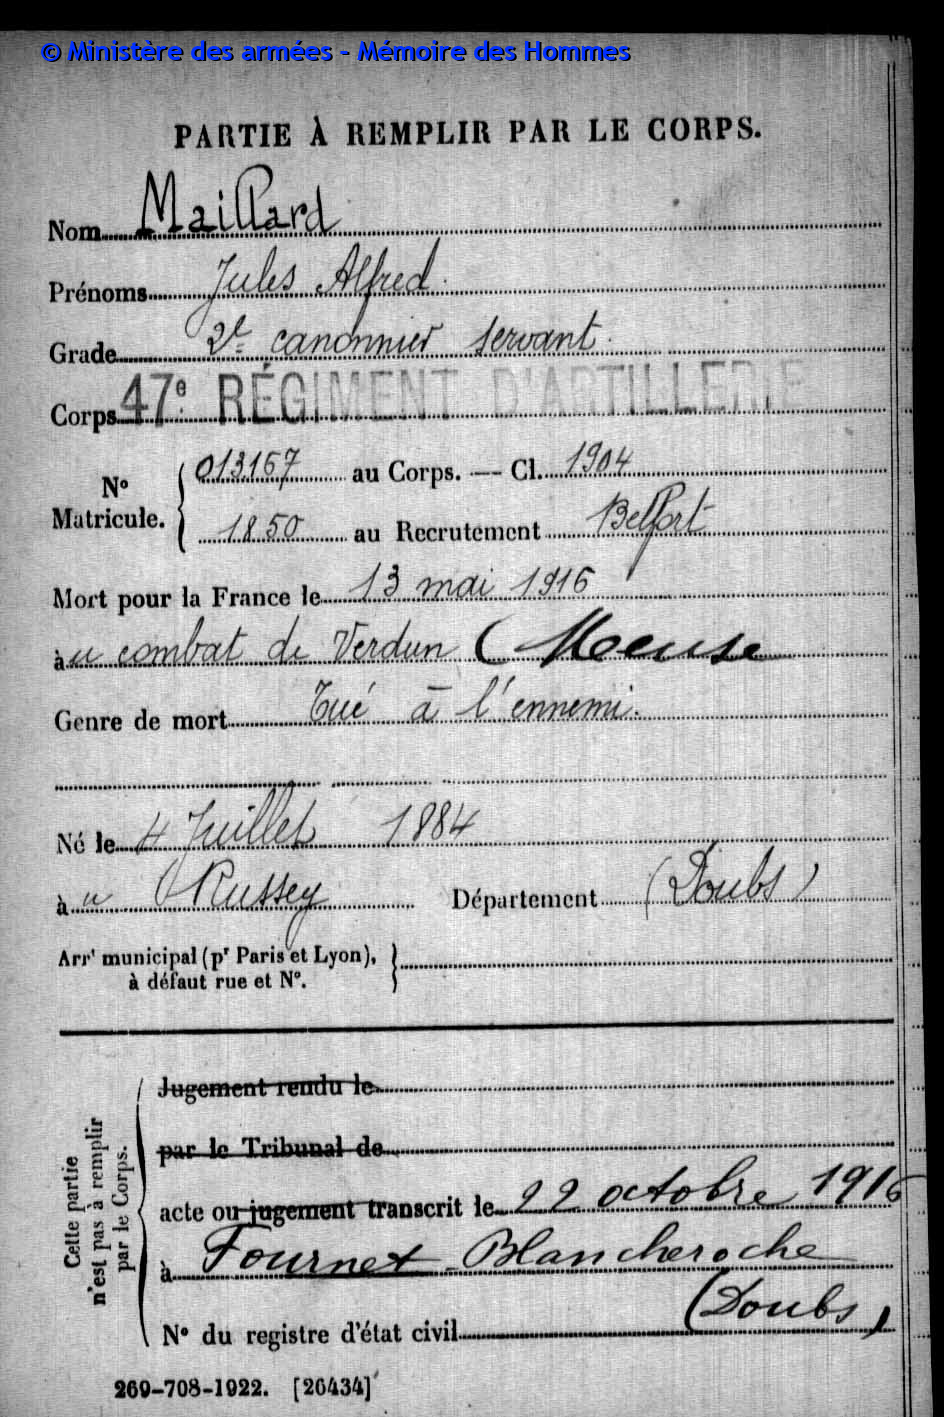 © Ministère des armées - Mémoire des Hommes
PARTIE À REMPLIR PAR LE CORPS.
Nom Maillard
Prénoms Jules Alfred
Grade 2e canonnier servant
Corps 47e RÉGIMENT D'ARTILLERIE
N° Matricule. { 013167 au Corps. — Cl. 1904
1850 au Recrutement Belfort
Mort pour la France le 13 mai 1916
àu combat de Verdun (Meuse
Genre de mort Tué à l'ennemi.
Né le 4 Juillet 1884
à u Russey Département (Doubs)
Arrt municipal (pr Paris et Lyon),
à défaut rue et N°.
Cette partie n'est pas à remplir par le Corps.
Jugement rendu le
par le Tribunal de
acte ou jugement transcrit le 22 octobre 1916
à Fournet-Blancheroche
(Doubs)
N° du registre d'état civil
269-708-1922. [26434]